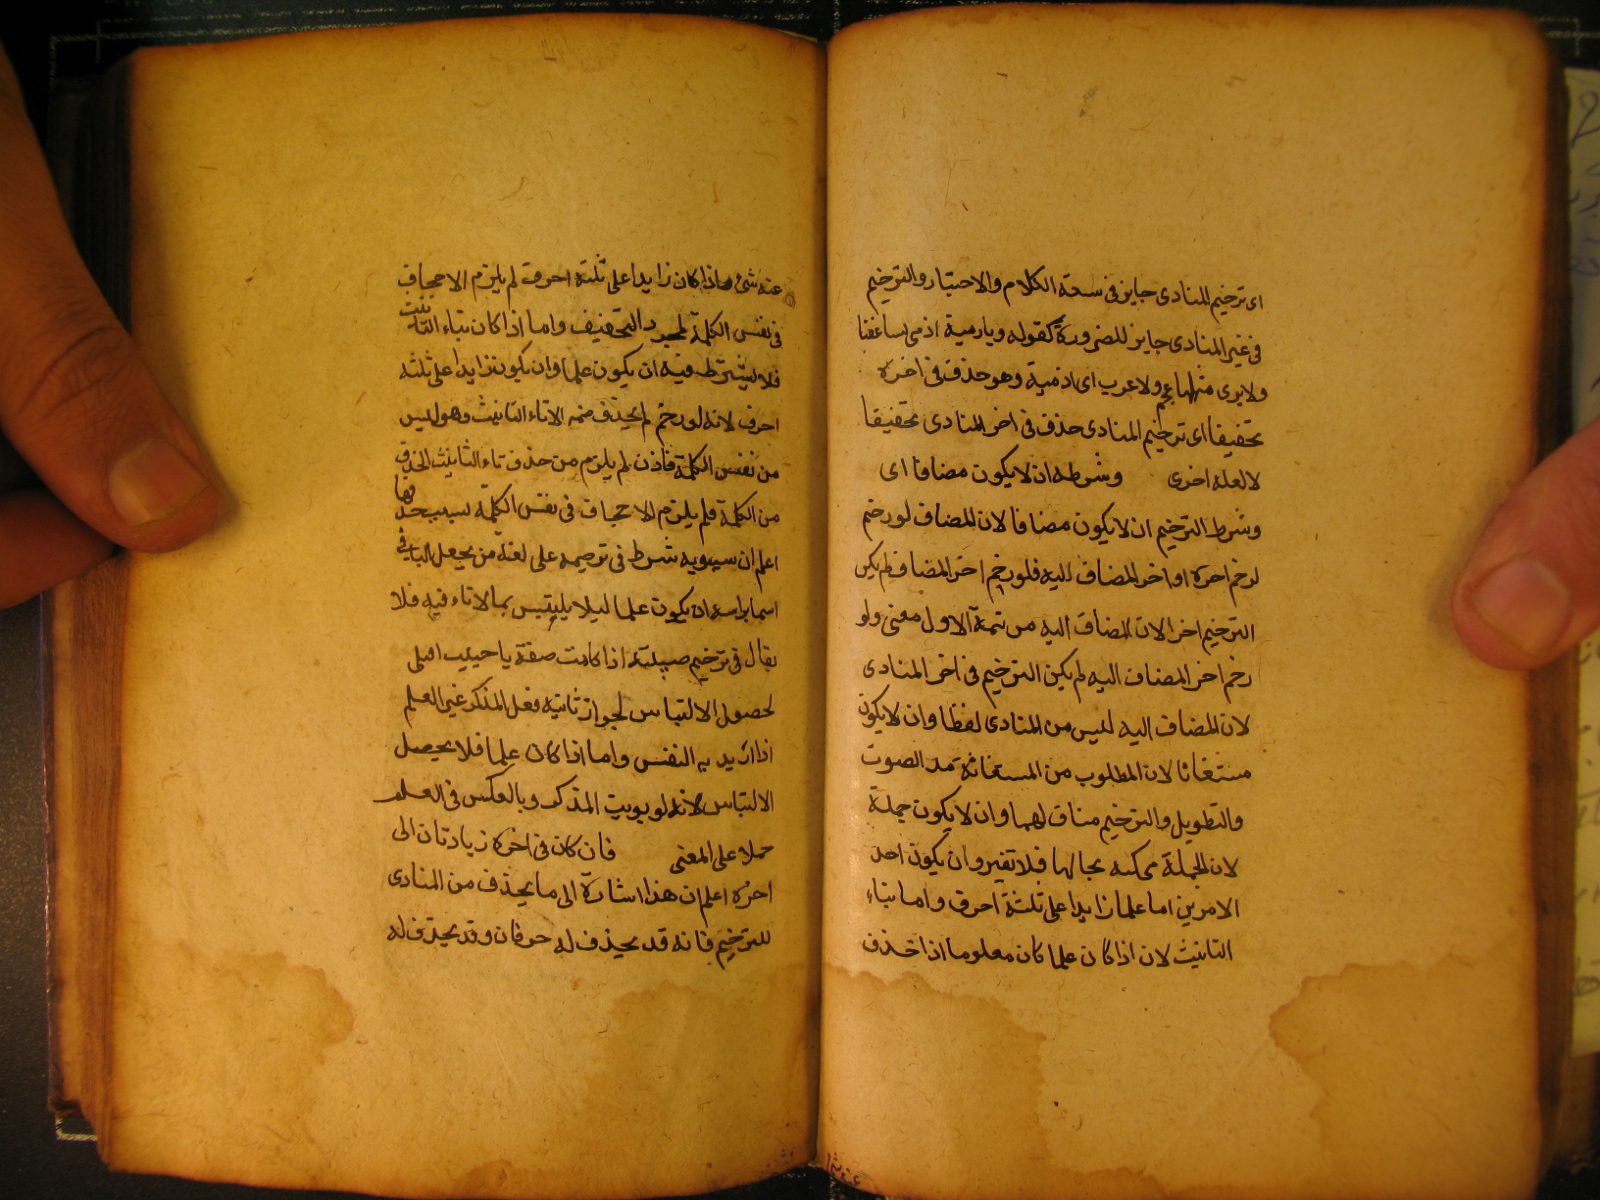 اى ترخيم المنادى جايز فى سعة الكلام والاختيار والترخيم
فى غير المنادى جايز للضرورة كقوله ديار مية اذ مى تساعفنا
ولا يرى مثلها عجم ولا عرب اى اذ مية وهو حذف فى اخره
تخفيفا اى ترخيم المنادى حذف فى اخر المنادى تخفيفا
لا لعله اخرى وشرطه ان لا يكون مضافا اى
وشرط الترخيم ان لا يكون مضافا لان المضاف لو رخم
لرخم اخره او اخر المضاف اليه فلو رخم اخر المضاف لم يكن
الترخيم اخرا لان المضاف اليه من تتمة الاول معنى ولو
رخم اخر المضاف اليه لم يكن الترخيم فى اخر المنادى
لان المضاف اليه ليس من المنادى لفظا وان لا يكون
مستغاثا لان المطلوب من المستغاثة مد الصوت
والتطويل والترخيم مناف لهما وان لا يكون جملة
لان الجملة محكية بحالها فلا تغير وان يكون احد
الامرين اما علما زايدا على ثلثة احرف واما بتاء
التانيث لان اذا كان علما كان معلوما اذا حذف
عنه شئ فاذا كان زايدا على ثلثة احرف لم يلزم الاجحاف
فى نفس الكلمة لمجرد التخفيف واما اذا كان بتاء التانيث
فلا يشترط فيه ان يكون علما وان يكون زايدا على ثلثه
احرف لانه لو رخم لم يحذف منه الا تاء التانيث وهو ليس
من نفس الكلمة فاذن لم يلزم من حذف تاء التانيث الحذف
من الكلمة فلم يلزم الاجحاف فى نفس الكلمة بسبب حذفها
اعلم ان سيبويه شرط فى ترخيمه على لغة من يجعل الباقى
اسما براسه ان يكون علما ليلا يلتبس بما لا تاء فيه فلا
يقال فى ترخيم اذا كانت صفة يا اقبلى
لحصول الالتباس لجواز تانيث فعل المذكر غير العلم
اذا اريد به النفس واما اذا كان علما فلا يحصل
الالتباس لانه لو المذكر وبالعكس فى العلم
حملا على المعنى فان كان فى اخره زيادتان الى
اخره اعلم ان هذا اشارة الى ما يحذف من المنادى
للترخيم فانه قد يحذف له حرفان وقد يحذف له